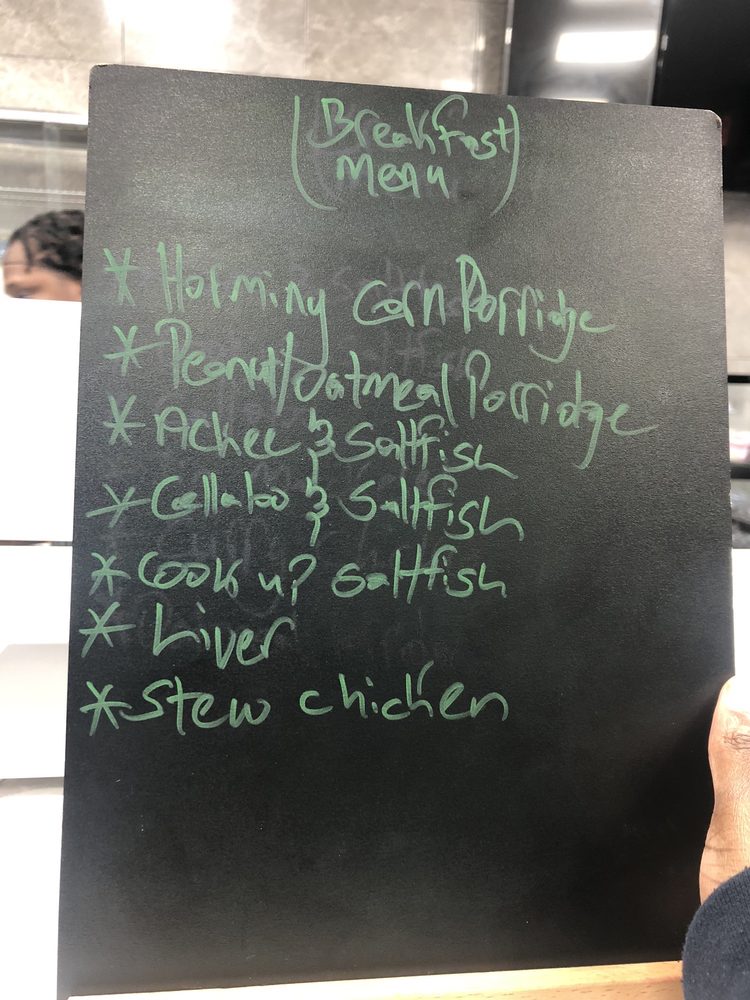 (Breakfast
Menu)
* Horminy corn Porridge
* Peanut/oatmeal Porridge
* Ackee & Saltfish
* Callaloo & Saltfish
* Cook up saltfish
* Liver
* Stew chicken